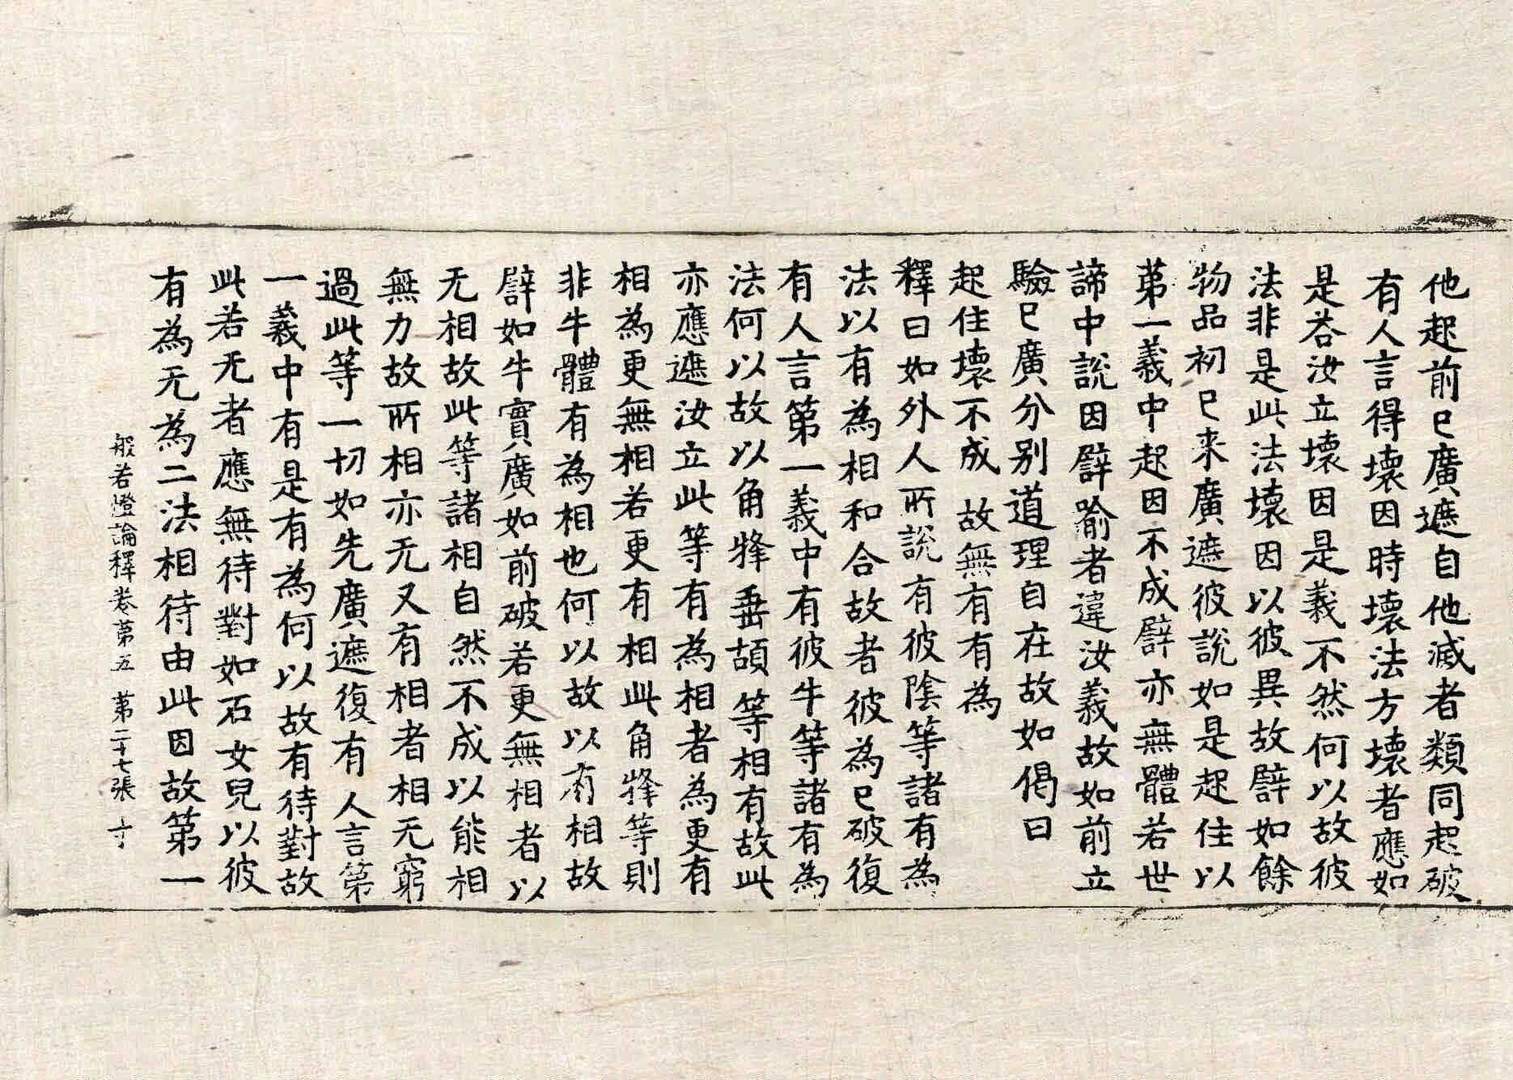 他起前已廣遮自他滅者類同起破
有人言得壞因時壞法方壞者應如
是荅汝立壞因是義不然何以故彼
法非是此法壞因以彼異故譬如餘
物品初已来廣遮彼說如是起住以
苐一義中起因不成譬亦無體若世
諦中說因譬喻者違汝義故如前立
驗已廣分别道理自在故如偈曰
起住壞不成　故無有有為
釋曰如外人所說有彼陰等諸有為
法以有為相和合故者彼為已破復
有人言第一義中有彼牛等諸有為
法何以故以角犎垂頡等相有故此
亦應遮汝立此等有為相者為更有
相為更無相若更有相此角犎等則
非牛體有為相也何以故以有相故
譬如牛實廣如前破若更無相者以
无相故此等諸相自然不成以能相
無力故所相亦无又有相者相无窮
過此等一切如先廣遮復有人言第
一義中有是有為何以故有待對故
此若无者應無待對如石女兒以彼
有為无為二法相待由此因故第一
般若燈論釋卷苐五　苐二十七張　寸